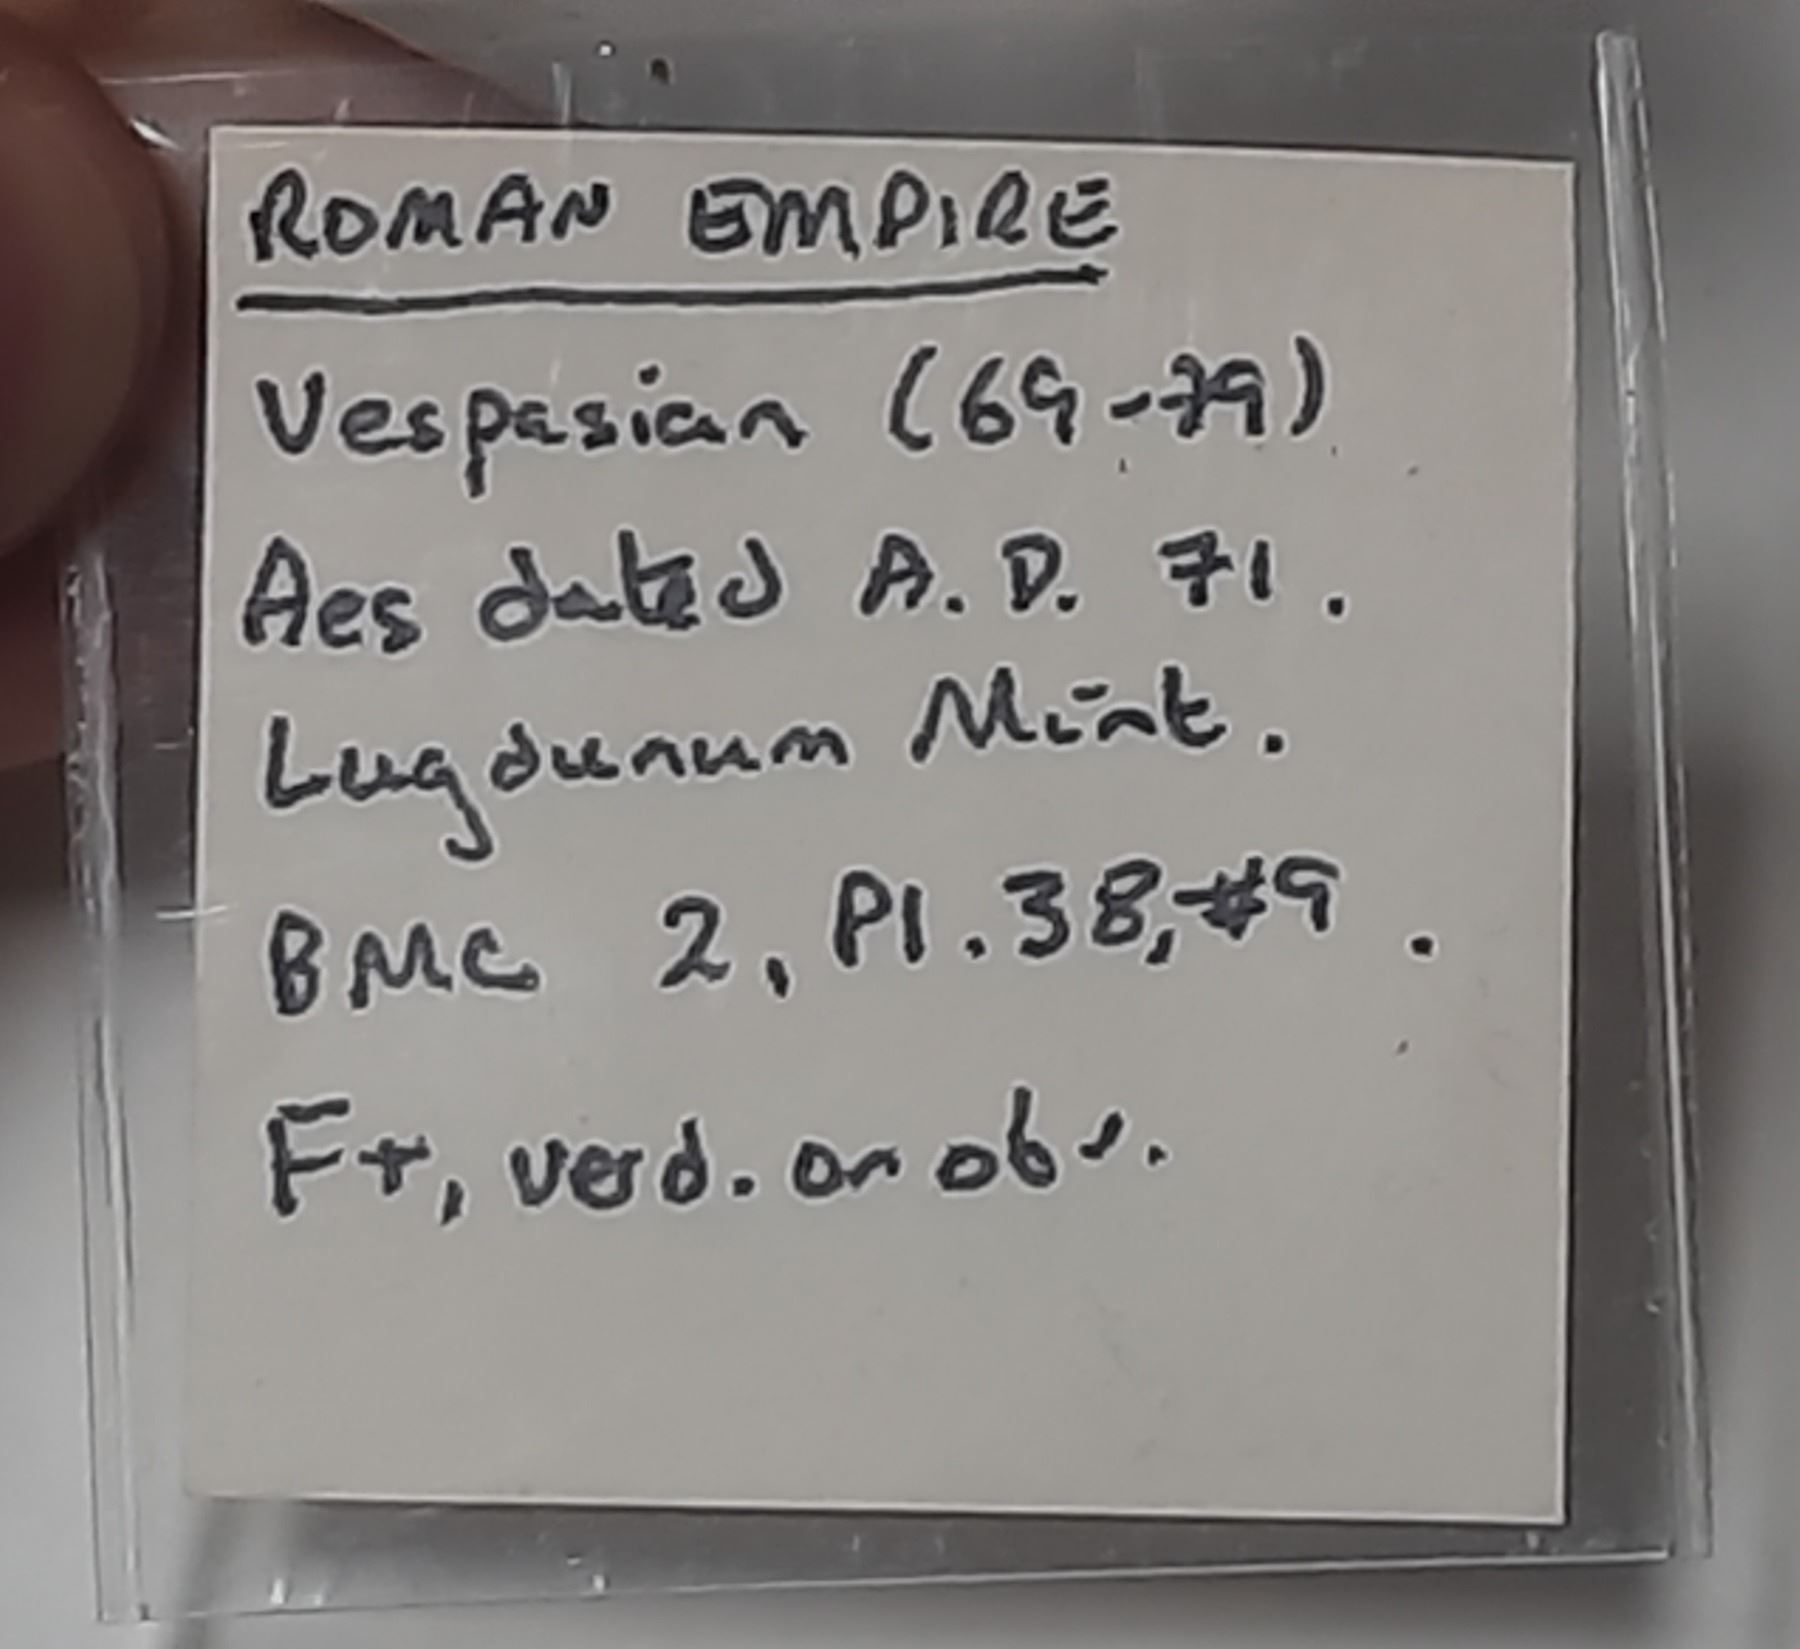 ROMAN EMPIRE
Vespasian (69-79)
Aes dated A.D. 71.
Lugdunum Mint.
BMC 2, Pl. 38, #9.
F+, verd. on obv.